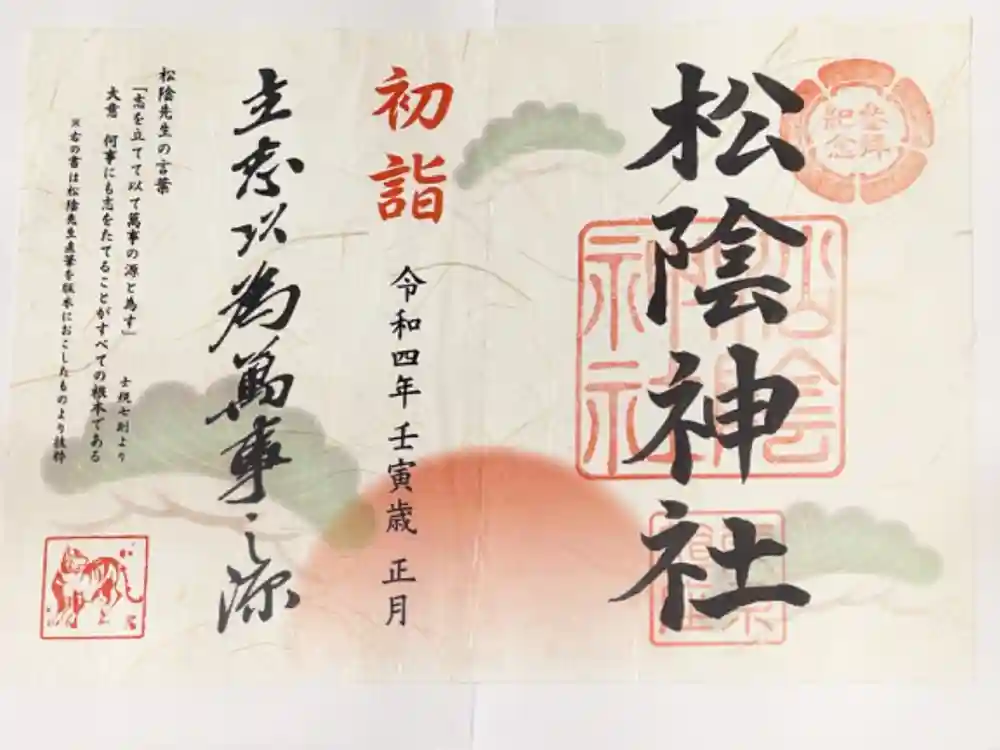 参拝
記念
松陰神社
松陰神社
初詣
令和四年 壬寅歳 正月
立志以為萬事之源
松陰先生の言葉
「志を立てて以て萬事の源と為す」
士規七則より
大意 何事にも志をたてることがすべての根本である
※右の書は松陰先生直筆を版木におこしたものより抜粋